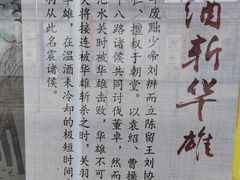 酒斩华雄
废黜少帝刘辨而立陈留王刘协
擅权于朝堂。以袁绍、曹操
十八路诸侯共同讨伐董卓，然而
氾水关时被华雄击败，华雄不可
大将接连被华雄斩杀之时，关羽
雄，在温酒未冷却的极短时间
羽从此名震诸侯。